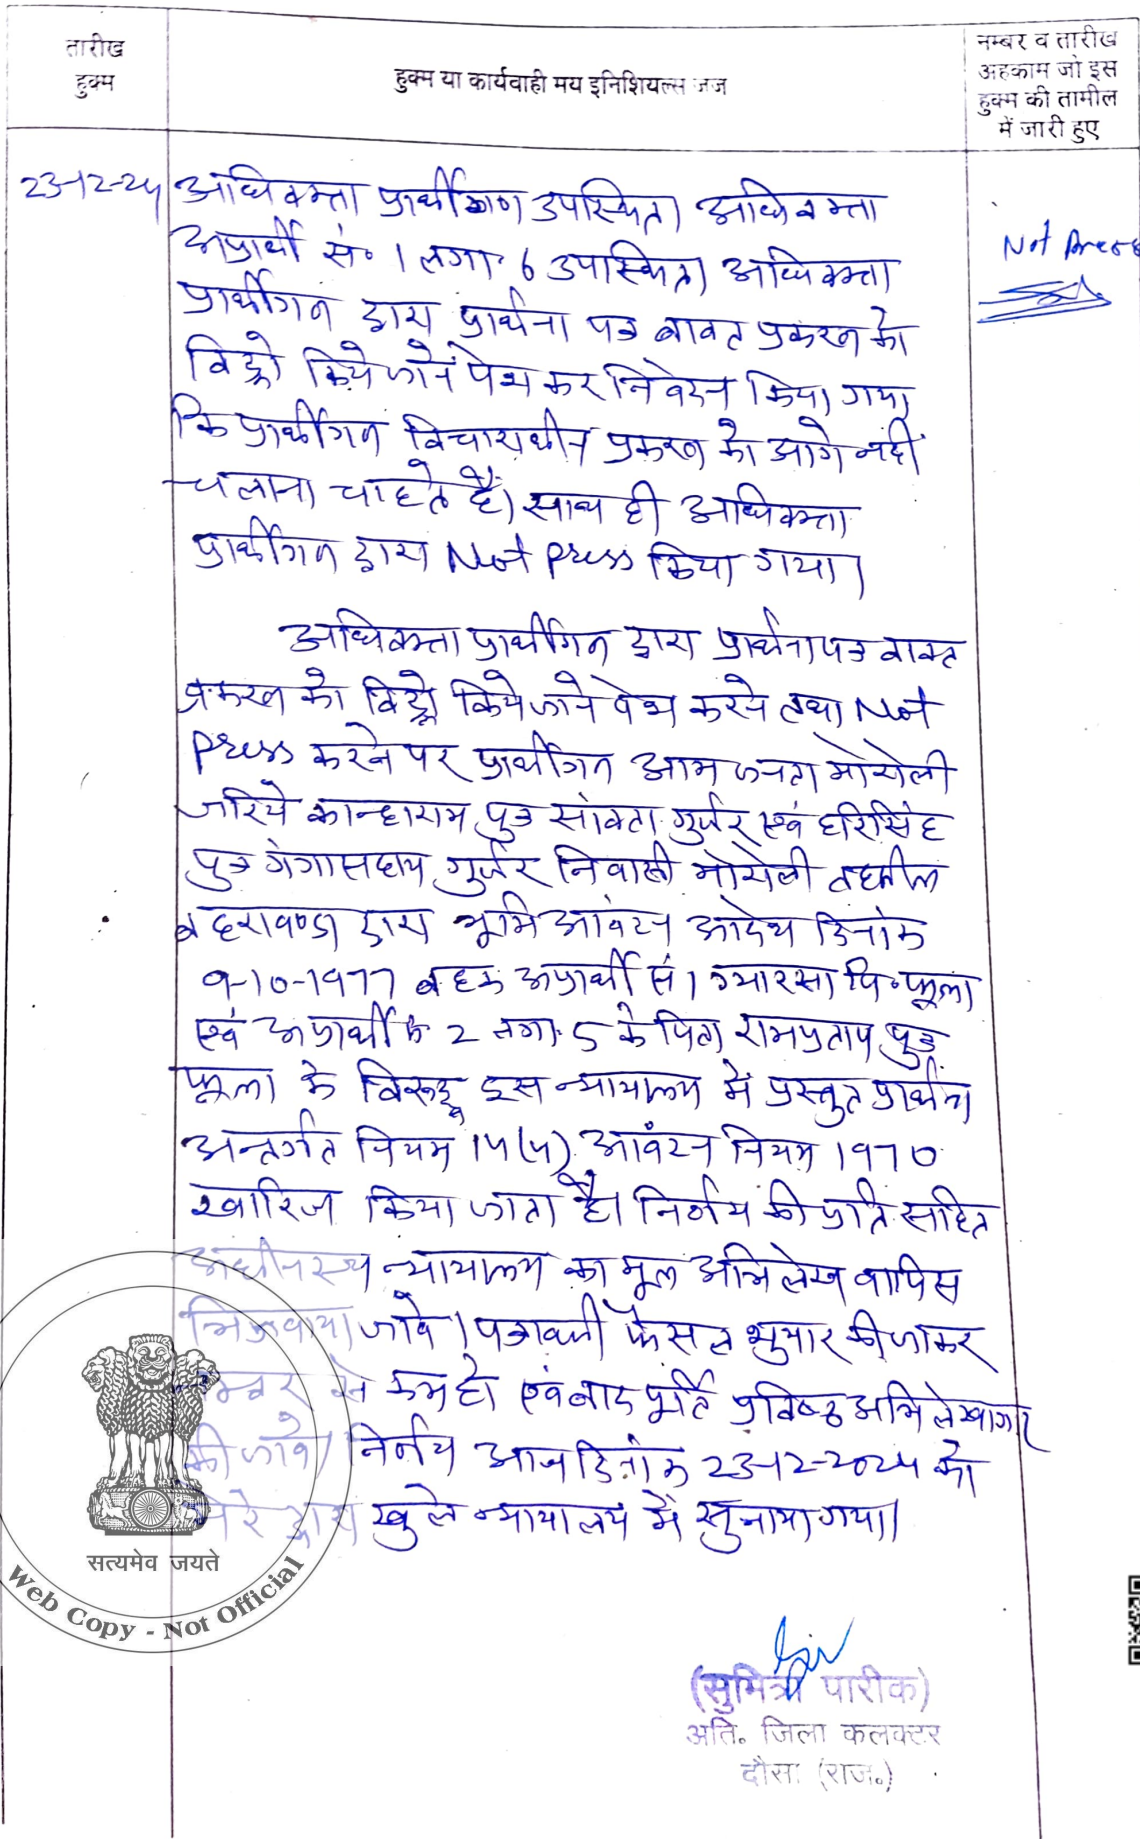 तारीख
हुक्म
हुक्म या कार्यवाही मय इनिशियल्स जज
नम्बर व तारीख
अहकाम जो इस
हुक्म की तामील
में जारी हुए
23-12-24
अधिवक्ता प्रार्थीगण उपस्थित। अधिवक्ता
अप्रार्थी सं॰ 1 लगा॰ 6 उपस्थित। अधिवक्ता
प्रार्थीगन द्वारा प्रार्थना पत्र बावत प्रकरन को
विड्रो किये जाने पेश कर निवेदन किया गया
कि प्रार्थीगन विचाराधीन प्रकरन को आगे नहीं
चलाना चाहते है। साथ ही अधिवक्ता
प्रार्थीगन द्वारा Not Press किया गया।
Not Press
अधिवक्ता प्रार्थीगन द्वारा प्रार्थना पत्र बावत
प्रकरन को विड्रो किये जाने पेश करने तथा Not
Press करने पर प्रार्थीगन आम जनता मोरोली
जरिये कान्हाराम पुत्र सांवता गुर्जर एवं हरिसिंह
पुत्र गंगासहाय गुर्जर निवासी मोरोली तहसील
बहरावण्डा द्वारा भूमि आवंटन आदेश दिनांक
9-10-1977 बहक अप्रार्थी सं 1 ग्यारसा पि॰ फूला
एवं अप्रार्थी 2 लगा॰ 5 के पिता रामप्रताप पुत्र
फूला के विरूद्ध इस न्यायालय में प्रस्तुत प्रार्थना
अन्तर्गत नियम 14(4) आवंटन नियम 1970
खारिज किया जाता है। निर्णय की प्रति सहित
अधीनस्थ न्यायालय का मूल अभिलेख वापिस
भिजवाया जावे। पत्रावली फैसल शुमार की जाकर
नम्बर से कम हो एवं बाद पूर्ति प्रविष्ठ अभिलेखागार
की जावे। निर्णय आज दिनांक 23-12-2024 को
मेरे द्वारा खुले न्यायालय में सुनाया गया।
सत्यमेव जयते
Web Copy - Not Official
(सुमित्रा पारीक)
अति॰ जिला कलक्टर
दौसा (राज॰)